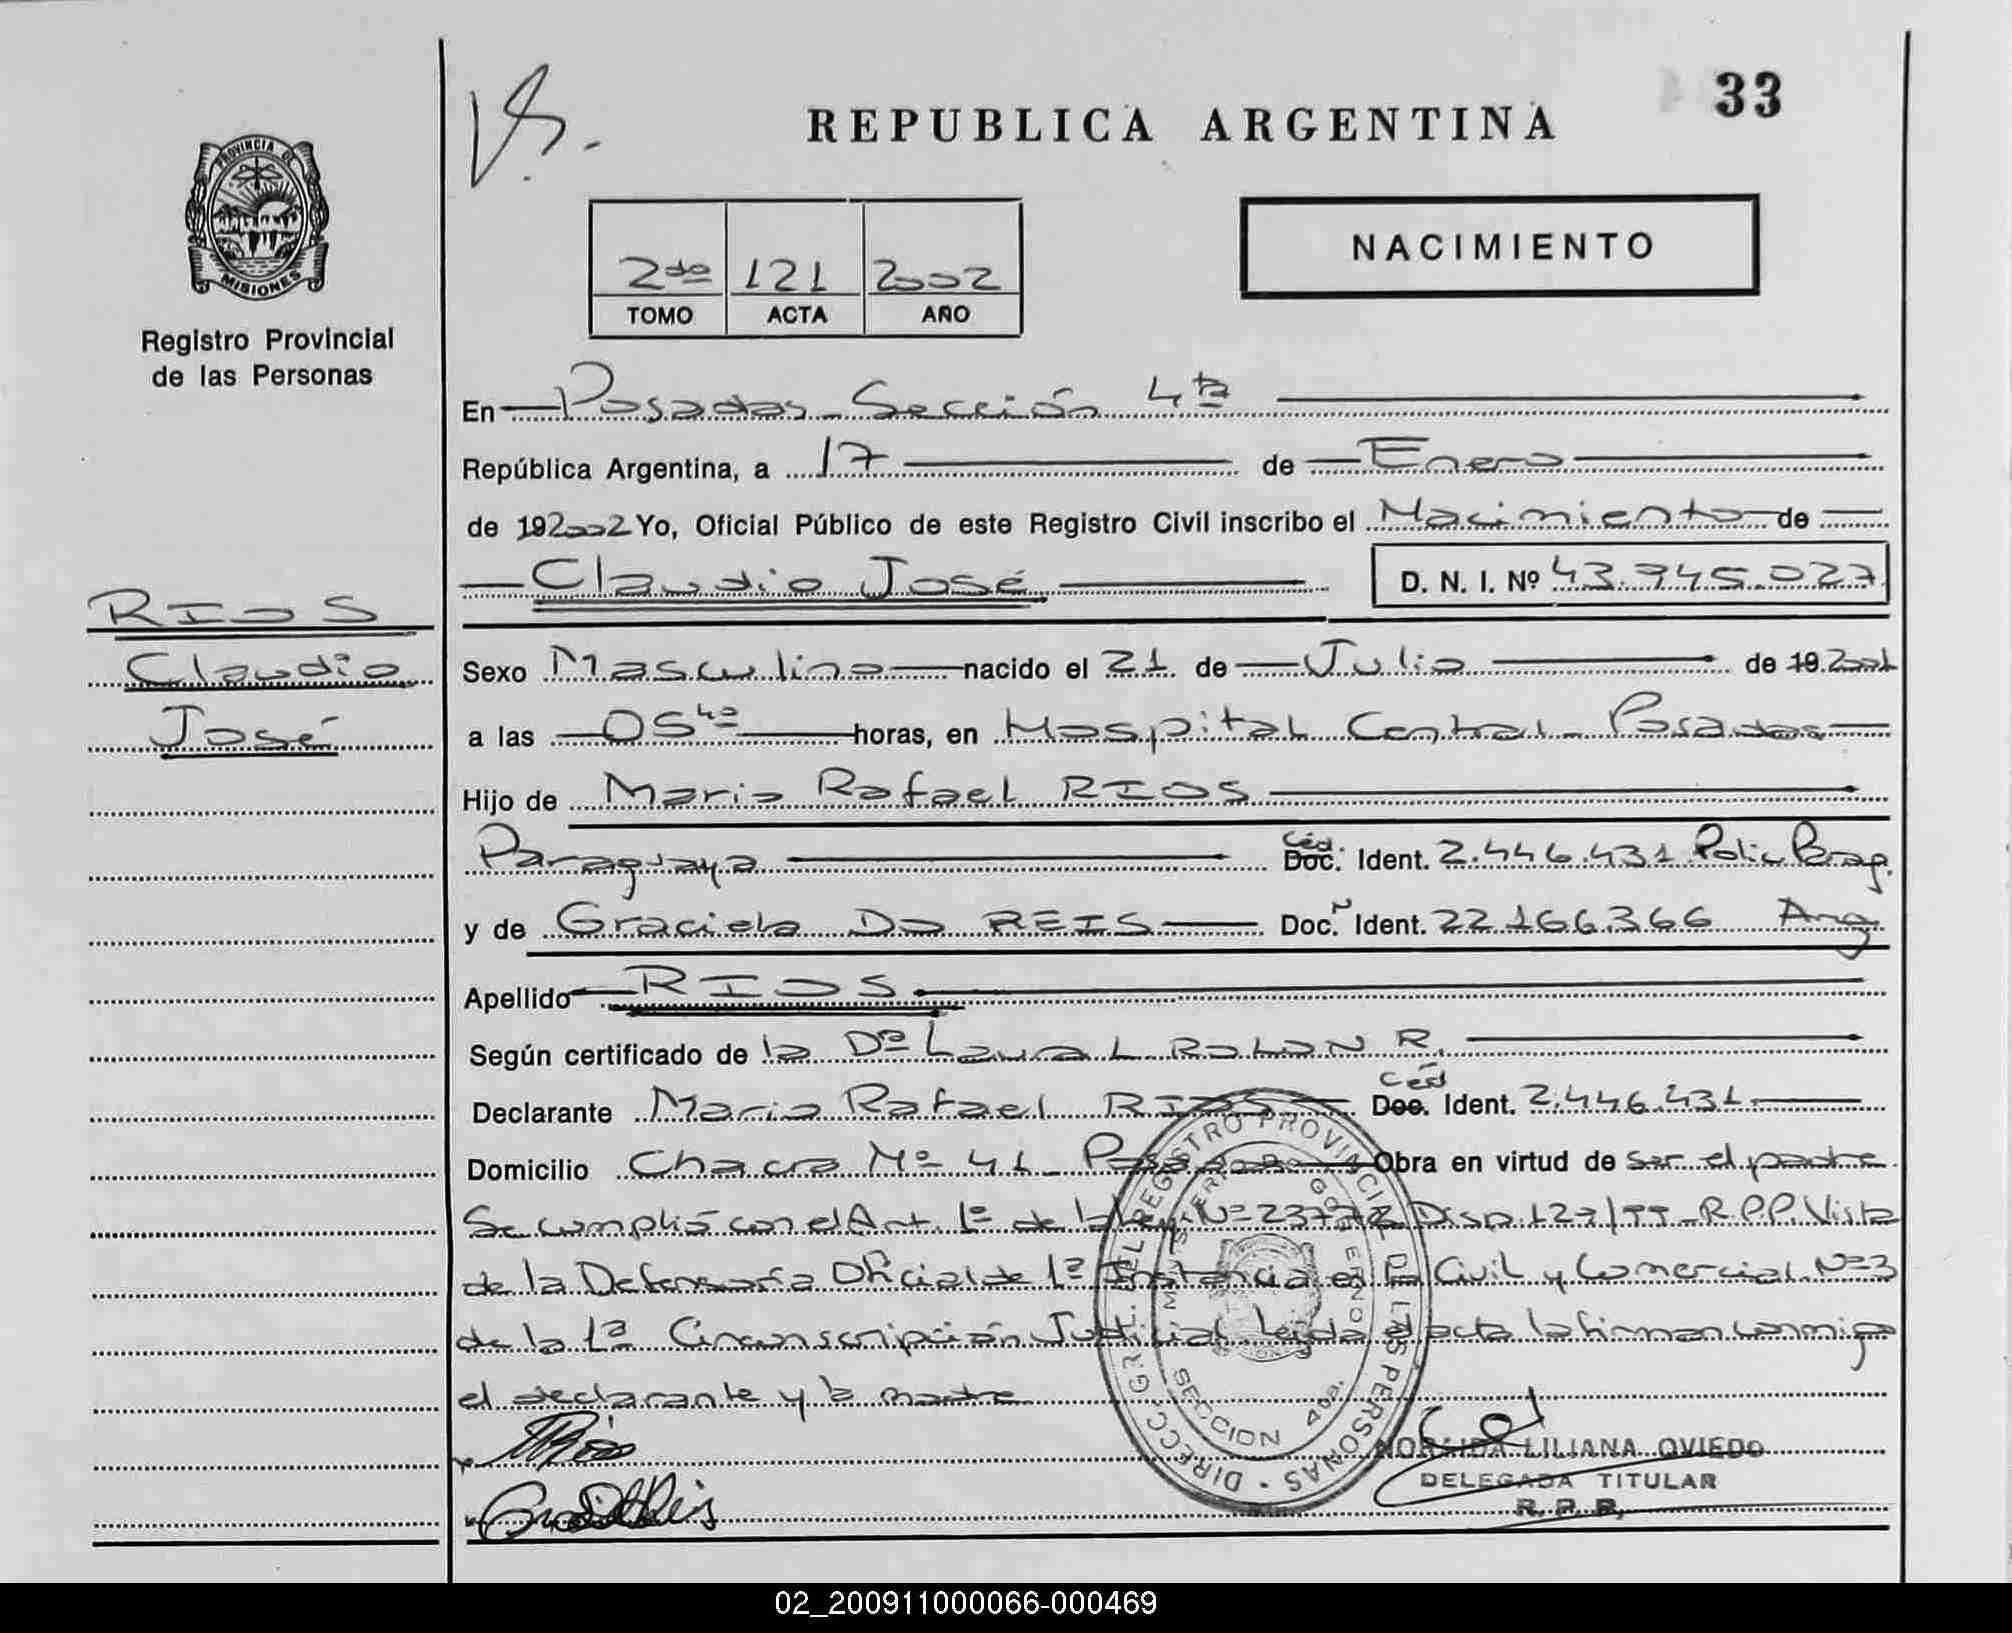 33
REPUBLICA ARGENTINA
PROVINCIA DE
MISIONES
Registro Provincial
de las Personas
NACIMIENTO
2do 121 2002
TOMO ACTA AÑO
En Posadas - Sección 4ta
República Argentina, a 17 de Enero
de 192002 Yo, Oficial Público de este Registro Civil inscribo el Nacimiento de
Claudio José D. N. I. Nº 43.945.027
RIOS
Claudio
José
Sexo Masculino nacido el 21 de Julio de 19.2001
a las 05 40 horas, en Hospital Central - Posadas
Hijo de Mario Rafael RIOS
Paraguaya Céd Doc. Ident. 2.446.431 Polic Parag.
y de Graciela DO REIS Doc. N Ident. 22.166.366 Arg
Apellido RIOS
Según certificado de la Dra Laura L ROLON R.
Declarante Mario Rafael RIOS Céd Doc. Ident. 2.446.431
Domicilio Chacra Nº 41 - Posadas Obra en virtud de ser el padre
Se cumplió con el Art. 1º de la Ley Nº 23776 Disp. 127/99 - R.P.P. Vista
de la Defensoría Oficial de 1ª Instancia en lo Civil y Comercial Nº 3
de la 1ª Circunscripción Judicial Leída el acta la firman conmigo
el declarante y la madre
DIRECC. GRAL. DEL REGISTRO PROVINCIAL DE LAS PERSONAS
MINISTERIO GOBIERNO
SECCION 4ta.
NORMIDA LILIANA OVIEDO
DELEGADA TITULAR
R. P. P.
02_200911000066-000469